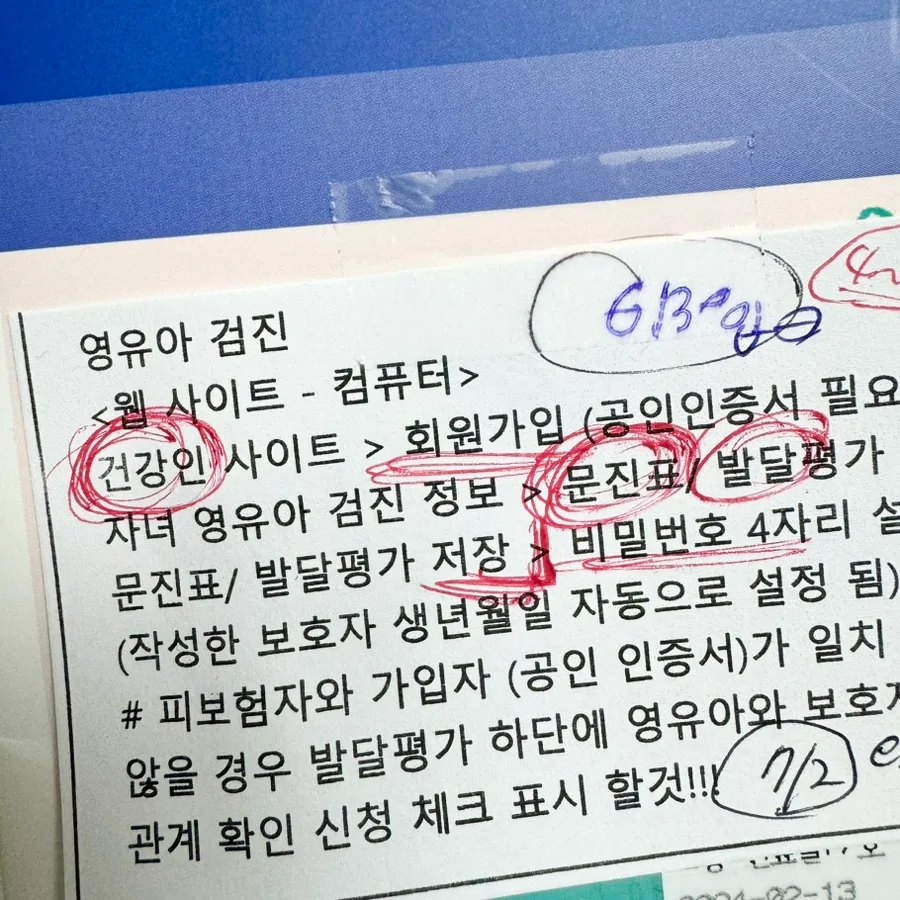 영유아 검진
<웹 사이트 - 컴퓨터>
건강인 사이트 > 회원가입 (공인인증서 필요
자녀 영유아 검진 정보 > 문진표/ 발달평가
문진표/ 발달평가 저장 > 비밀번호 4자리 설
(작성한 보호자 생년월일 자동으로 설정 됨)
# 피보험자와 가입자 (공인 인증서)가 일치
않을 경우 발달평가 하단에 영유아와 보호자
관계 확인 신청 체크 표시 할것!!!
7/2
2024-02-13